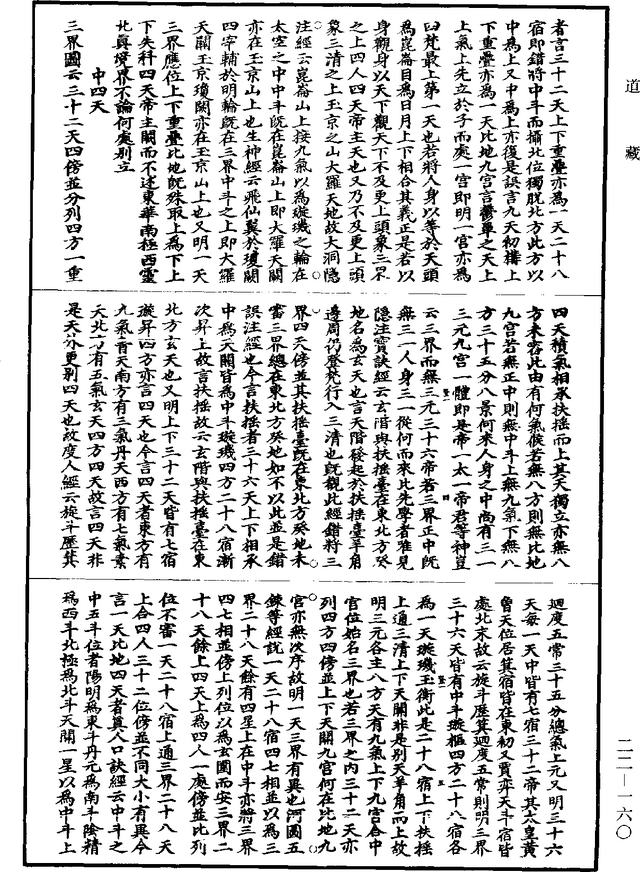 道藏
者言三十二天上下重疊亦為一天二十八
宿即錯將中斗而攝北位獨脫北方此方以
中為上又中為上亦復是誤言九天初構上
下重疊亦為一天比地九宮言鬱單之天上
上氣上先立於子而處一宮即明一宮亦為
曰梵最上第一天也若將人身以等於天頭
為崑崙目為日月上下相合其義正是若以
身觀身以天下觀天下不及更上頭象三界
之上四人四天帝主天也又乃不及更上頭
象三清之上玉京之山大羅天地故大洞隱
注經云崑崙山上接九氣以為璇璣之輪在
太空之中中斗既在崑崙山上即大羅天關
亦在玉京山上也生神經云飛仙翼於瓊闕
四宰輔於明輪既在三界中斗之上即大羅
天關玉京瓊闕亦在玉京山上也又明一天
三界應位上下重疊比地既殊取上為下上
下失科四天帝主闕而不述東華南極西靈
北真境界不論何處別立
中四天
三界圖云三十二天四傍並分列四方一重
四天積氣相承扶搖而上其天獨立亦無八
方未審此由有何氣候若無八方則無比地
九宮若無正中則無中斗上無九氣下無八
方三十五分八景何來人身之中尚有三一
三元九宮一體即是帝一太一帝君等神豈
云三界而無三元三十六帝若三界正中既
無三一人身三一從何而來比先學者雅見
隱注寶訣經云玄階與扶搖臺在東北方癸
地名為玄天也言天階發起於扶搖臺羊角
邊周仍登梵行入三清也既觀此經錯將三
界四天傍並其扶搖臺既在東北方癸地未
審三界總在東北方癸地如不以此並是錯
誤注經也今言扶搖者三十六天上下相承
中為天關皆為中斗璇璣四方二十八宿漸
次昇上故言扶搖故云玄階與扶搖臺在東
北方玄天也又明上下三十二天皆有七宿
璇昇四方亦言四天也今言四天者東方有
九氣青天南方有三氣丹天西方有七氣素
天北方有五氣玄天四方四天故言四天非
是天外更別四天也故度人經云旋斗歷箕
迴度五常三十五分總氣上元又明三十六
天每一天中皆有七宿三十二帝其太皇黃
曾天位居箕宿皆在東初又賈奕天斗宿皆
處北末故云旋斗歷箕迴度五常則明三界
三十六天皆有中斗璇樞四方二十八宿各
為一天璇璣玉衡此是二十八宿上下扶搖
上通三清上下天關非是別天羊角而上故
明三元各主八方天有九氣上下九宮合中
宮位始名三界也若三界之內三十二天亦
列四方四傍並上下天關九宮何在比地九
宮亦無次序故明一天三界有異也河圖五
鍊等經說一天二十八宿四七相並以為三
界二十八天餘有四星上在中斗亦將三界
四七相並傍上列位以為玄圖而安三界二
十八天餘上四天上為四人一處傍並比列
位不審一天二十八宿上通三界二十八天
上合四人三十二位傍並不同大小有異今
言一天比地四天者真人口訣經云中斗之
中五斗位者陽明為東斗丹元為南斗陰精
為西斗北極為北斗天關一星以為中斗上
二二—一六〇